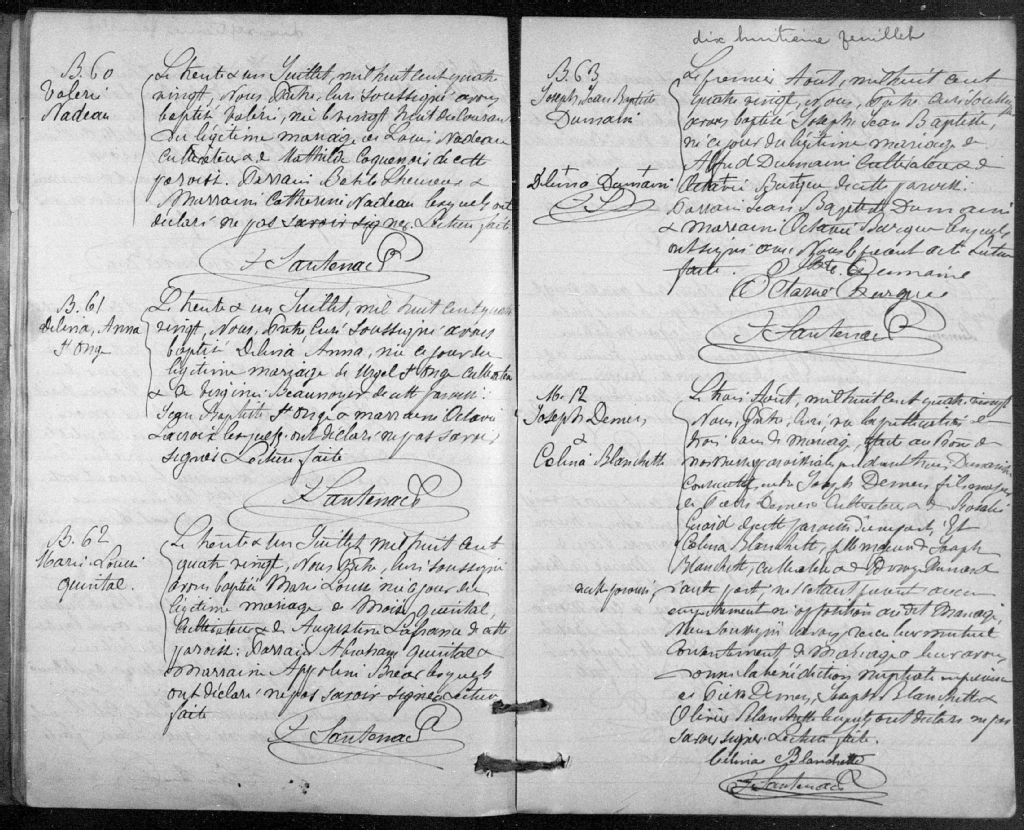 B. 60
Valeri
Nadeau
Le trente & un Juillet, mil huit cent quatre
vingt, Nous, Prêtre, Curé soussigné avons
baptisé Valéri, né le vingt huit du courant
du légitime mariage de Louis Nadeau
Cultivateur & de Mathilde Coquenois de cette
paroisse. Parrain Basile &
Marraine Catherine Nadeau lesquels ont
déclaré ne pas savoir signer. Lecture faite
F Santenac P
B. 61
Delina, Anna
St Onge
Le trente & un Juillet, mil huit cent quatre
vingt, Nous, Prêtre, Curé Soussigné avons
baptisé Delina Anna, née ce jour du
légitime mariage de Urgel St Onge Cultivateur
& de Virginie Beaunoyer de cette paroisse:
Jean Baptiste St Onge & marraine Octavie
Lacroix lesquels ont déclaré ne pas savoir
signer Lecture faite
F Santenac P
B. 62
Marie Louise
Quintal.
Le trente & un Juillet mil huit cent
quatre vingt, Nous Prêtre, Curé soussigné
avons baptisé Marie Louise née ce jour du
légitime mariage de Moïse Quintal,
Cultivateur & de Augustine Lafrance de cette
paroisse: Parrain Abraham Quintal &
Marraine Appoline lesquels
ont déclaré ne pas savoir signer Lecture
faite
F Santenac P
dix huitième feuillet
B. 63
Joseph Jean Baptiste
Dumaini
Le premier Aout, mil huit cent
quatre vingt, Nous, Prêtre Curé Soussigné
avons baptisé Joseph Jean Baptiste,
né ce jour du légitime mariage de
Alfred Dumaini Cultivateur & de
Octavie de cette paroisse:
Parrain Jean Baptiste Dumaini
& marraine Octavie lesquels
ont signé avec Nous le présent acte Lecture
faite.
Bte. Dumaine
Octavie
F Santenac P
Delima Dumaini
M. 12
Joseph Demers
&
Celina Blanchette
Le trois Aout, mil huit cent quatre vingt
Nous, Prêtre, Curé, vu la publication de
trois bans de mariage, faite au Prône de
nos Messes paroissiales pendant trois Dimanches
Consecutifs, entre Joseph Demers fils majeur
de Demers Cultivateur & de Rosalie
Guard de cette paroisse d'une part, Et
Celina Blanchette, fille mineure de Joseph
Blanchette, Cultivateur & de
de cette paroisse, d'autre part, ne s'étant trouvé aucun
empêchement ou opposition au dit Mariage,
Nous Soussigné avons reçu leur mutuel
Consentement de Mariage & leur avons
donné la bénédiction nuptiale en présence
de Demers, Joseph Blanchette &
Olivier Blanchette lesquels ont déclaré ne pas
savoir signer. Lecture faite.
Celina Blanchette
F Santenac P